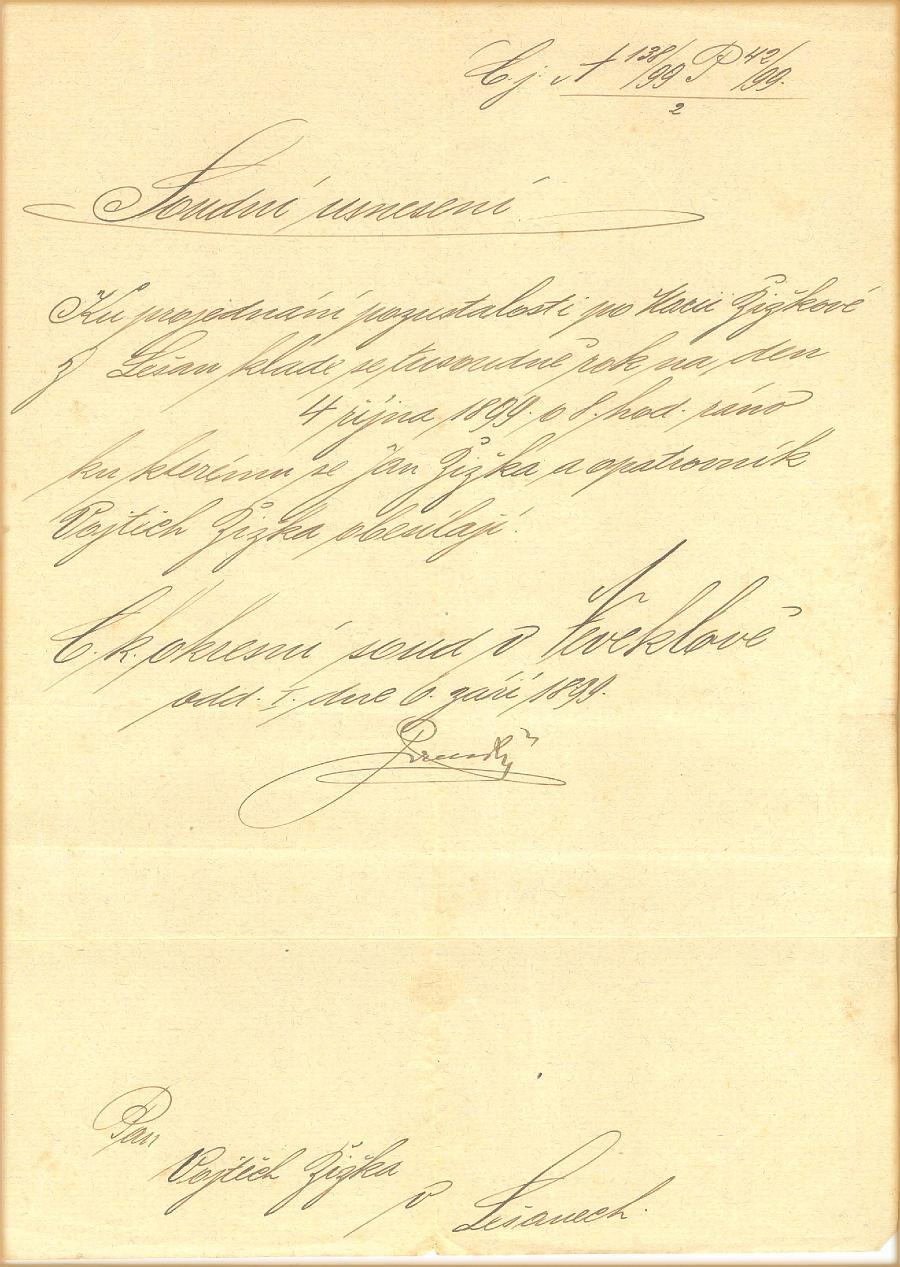 Č. j. A 138/99 P 42/99.
2
Soudní usnesení
Ku projednání pozůstalosti po Marii Žižkové
z Lešan klade se tusoudně rok na den
4 října 1899 o 8. hod. ráno
ku kterému se Jan Žižka a opatrovník
Vojtěch Žižka obesílají.
C. k. okresní soud v Neveklově
odd. I. dne 6. září 1899.
Pan
Vojtěch Žižka
v Lešanech.